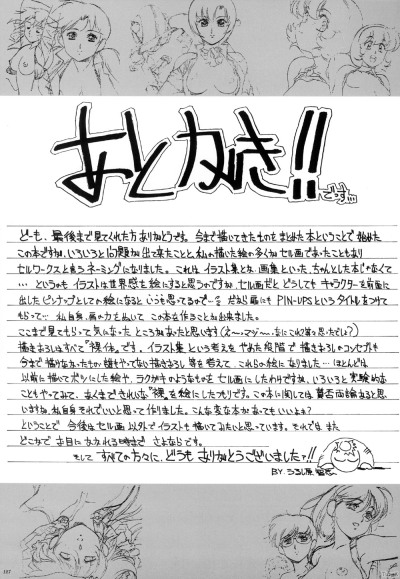 あとがき!!
です…
どーも、最後まで見てくれた方ありがとうです。今まで描いてきたものをまとめた本ということで始めた
この本ですが、いろいろと問題が出て来たことと、私の描いた絵の多くがセル画であったこともあり
セルワークスと言うネーミングになりました。これはイラスト集とか、画集といった、ちゃんとした本じゃなくて
…というのもイラストは世界感を絵にすると思うのですが、セル画だとどうしてもキャラクターを前面に
出したピンナップとしての絵になると いうので…だから前にも PIN-UPSというタイトルをつけて
もらって… 私自身、画の力をぬいて この本を作ることが出来ました。
ここまで見てもらって気になった ところがあったと思います
描きおろしはすべて“裸体”です。イラスト集という考えを やめた段階で 描きおろしのコンセプトも
今まで描かなかったもの 誰もやってない描きおろし 等を考えて、これらの絵になりました…ほとんどは
以前に描いてボツにした絵や、ラクガキのようなものを セル画にしたわけですね、いろいろと実験的な
こともやってみて、あくまできれいな“裸”を絵にしたつもりです。この本に関しては 賛否両論あると思い
ますが、私自身それでいいと思って作りました。こんな変な本があってもいいよネ?
ということで 今後はセル画以外でイラストも描いてみたいと思っています。それでは また
どこかで お目に かかれる時まで さよならです。
そして すべての方々に、どうも ありがとうございましたァ!!
BY. うるし原 智志
107